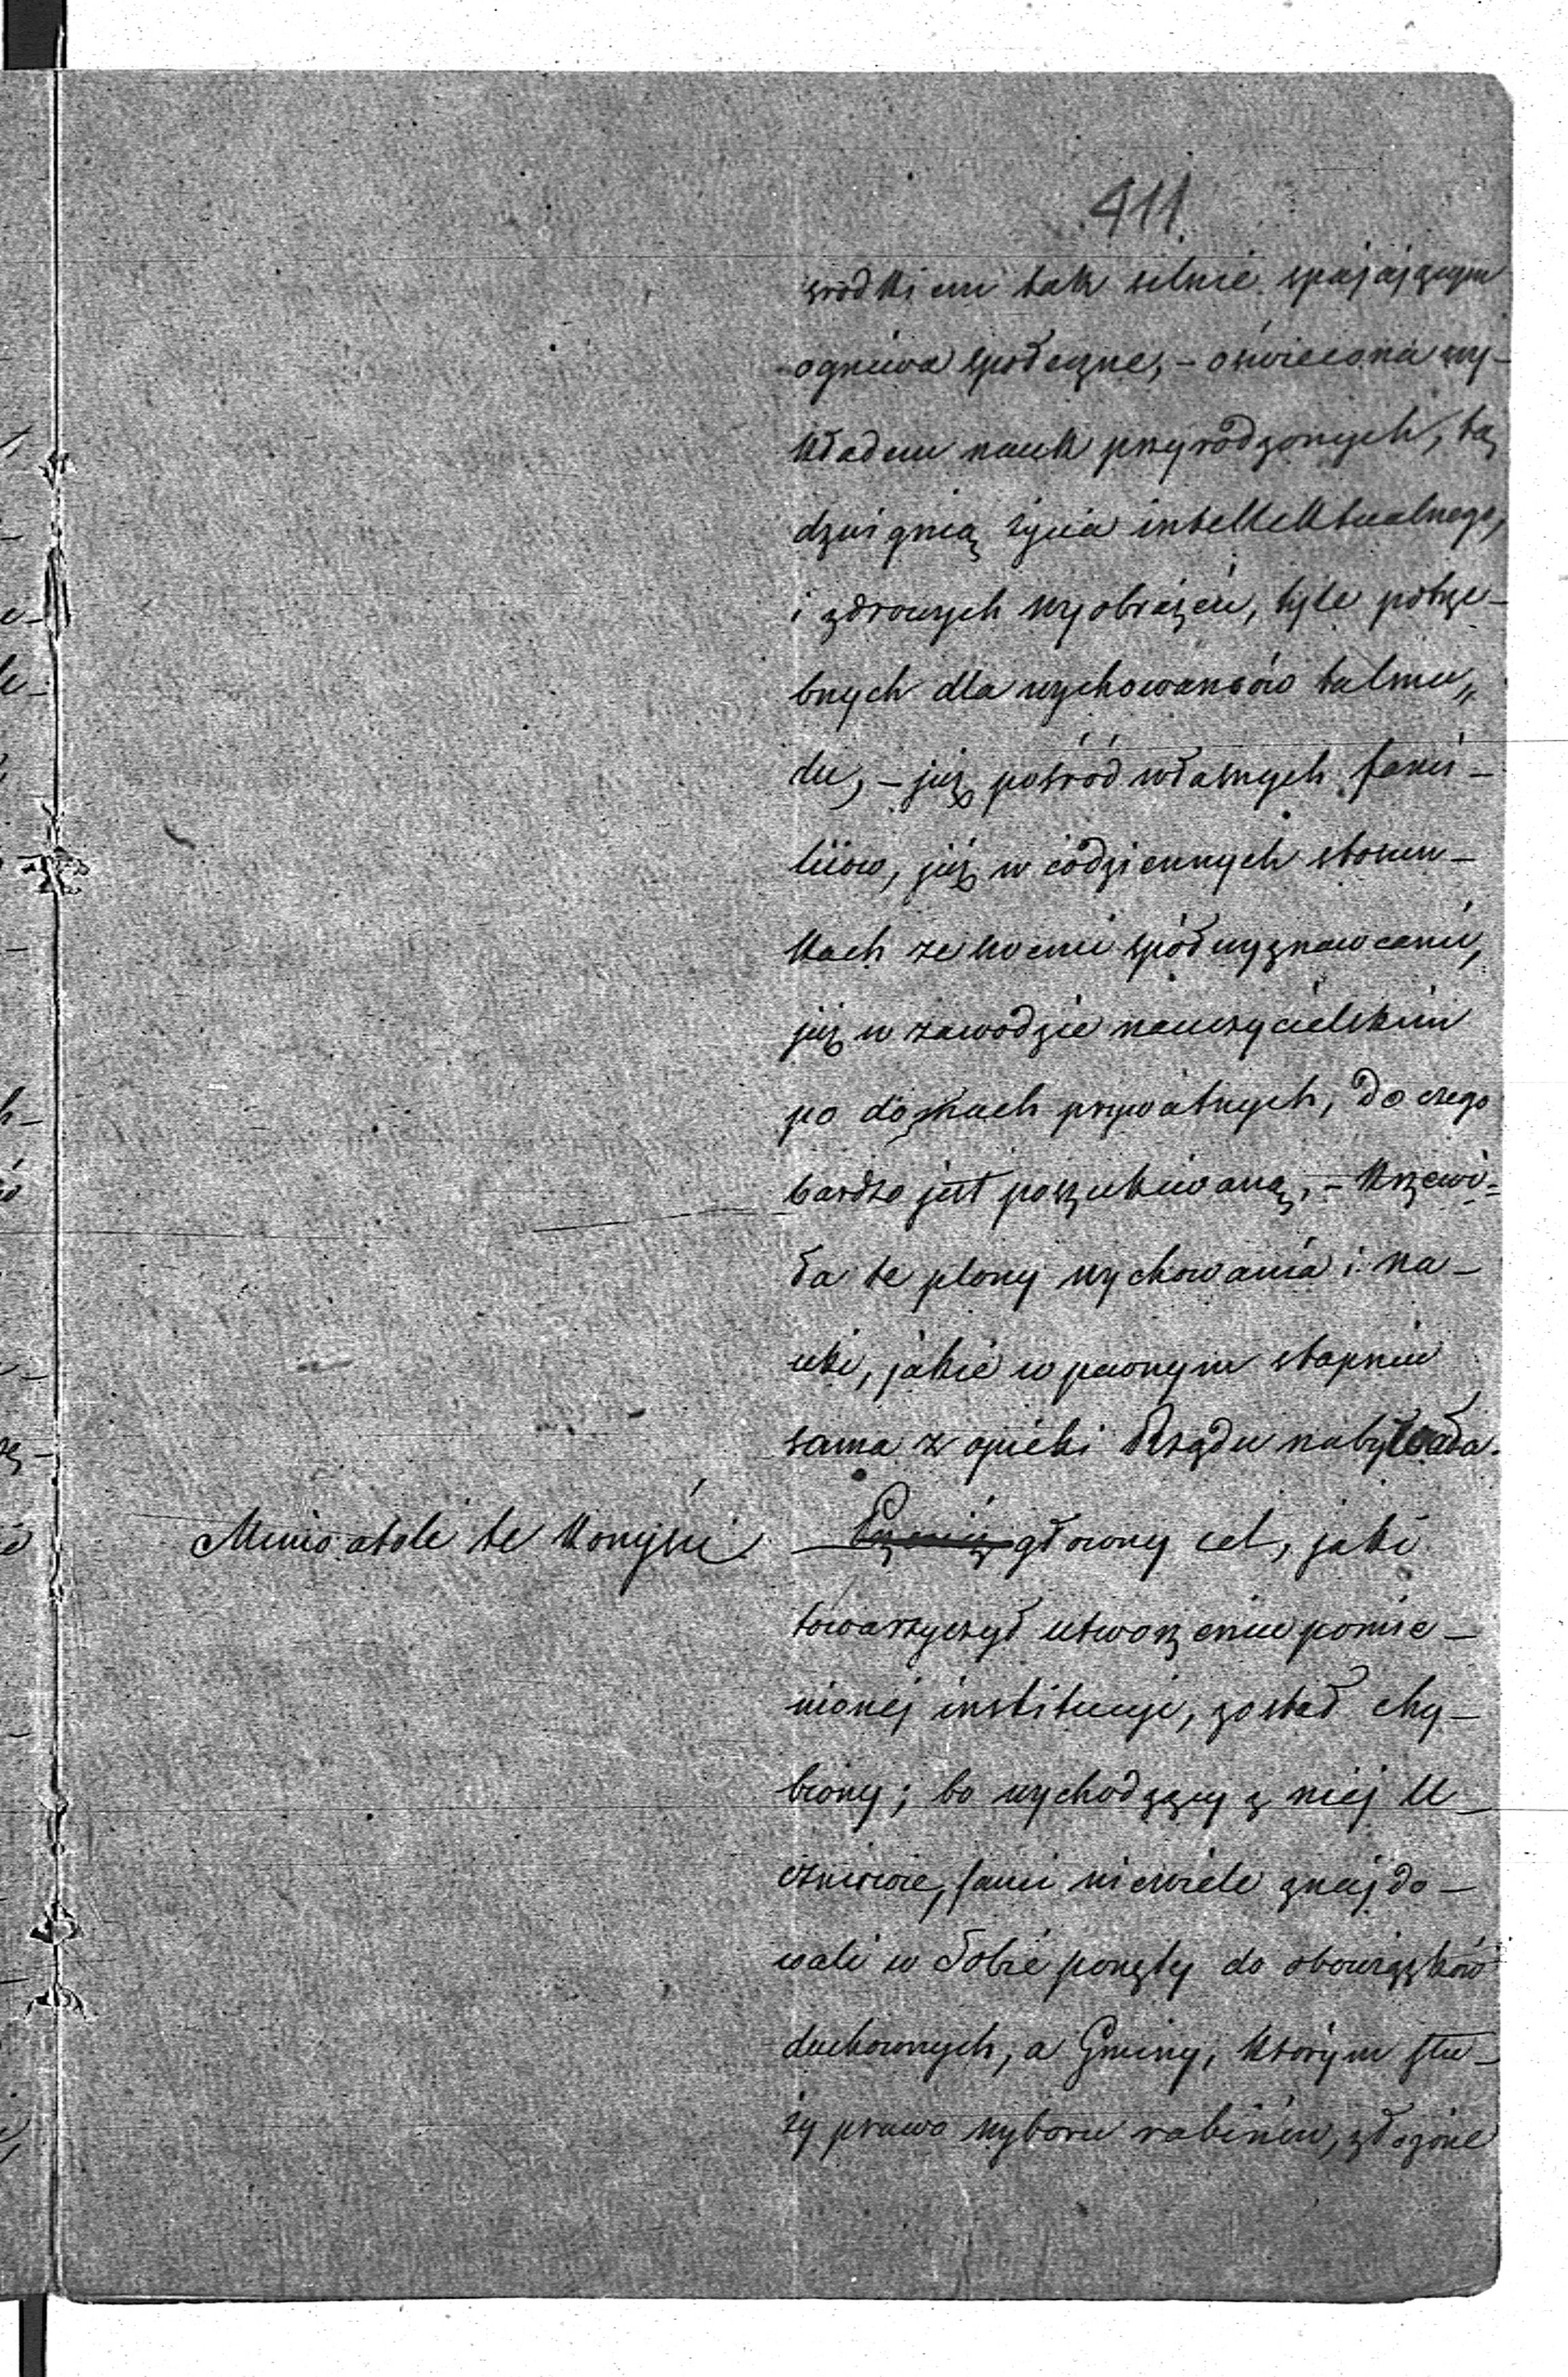 411.
środkiem tak silnie spajającym
ogniwa społeczne, – oświecona wy-
kładem nauk przyrodzonych, tą
dzwignią życia intellektualnego,
i zdrowych wyobrażeń, tyle potrze-
bnych dla wychowańców talmu„
du, – już pośród własnych fami-
liiów, już w codziennych stosun-
kach ze swemi spółwyznawcami,
już w zawodzie nauczycielskim
po domach prywatnych, do czego
bardzo jest poszukiwaną, – krzewi-
ła te plony wychowania i na-
uki, jakie w pewnym stopniu
sama z opieki Rządu nabywała.
Mimo atoli te korzyści główny cel, jaki
towarzyszył utworzeniu pomie-
nionej instituciji, został chy-
biony; bo wychodzący z niej U-
czniowie, sami niewiele znajdo-
wali w Sobie ponęty do obowiązków
duchownych, a Gminy, którym słu-
ży prawo wyboru rabinów, złożone